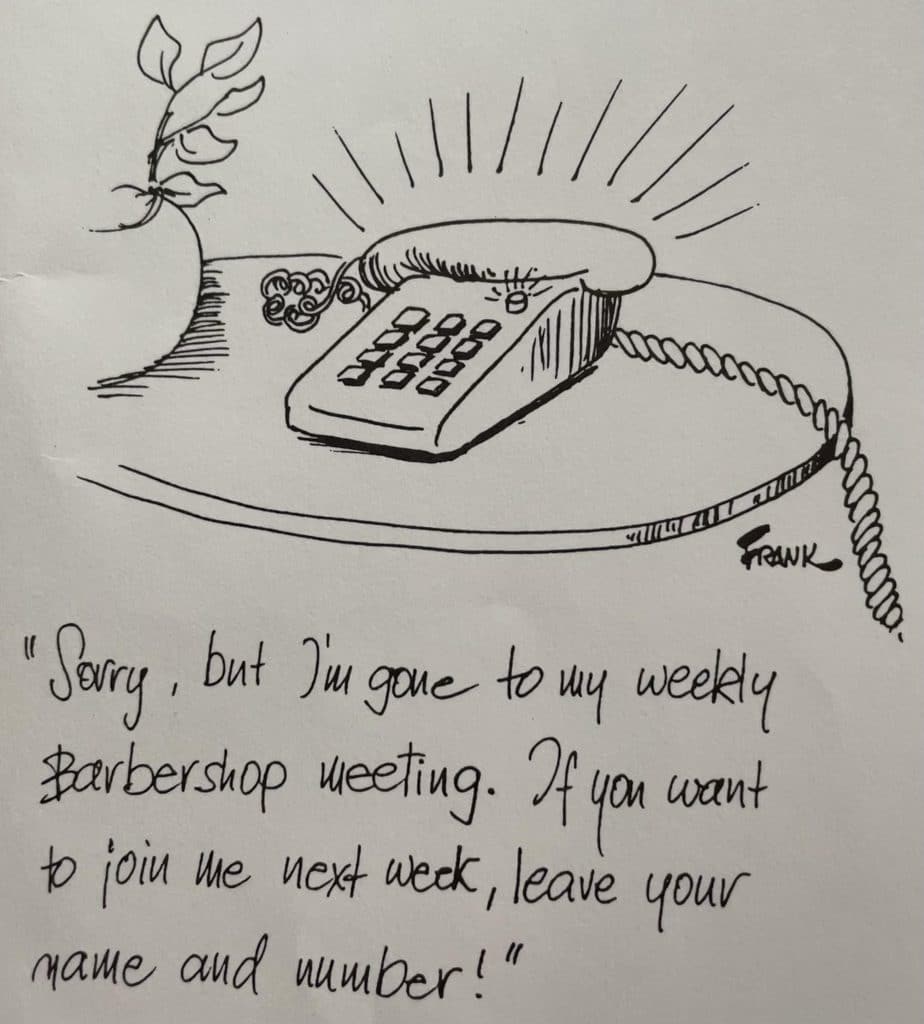 FRANK
"Sorry, but I'm gone to my weekly
Barbershop meeting. If you want
to join me next week, leave your
name and number!"